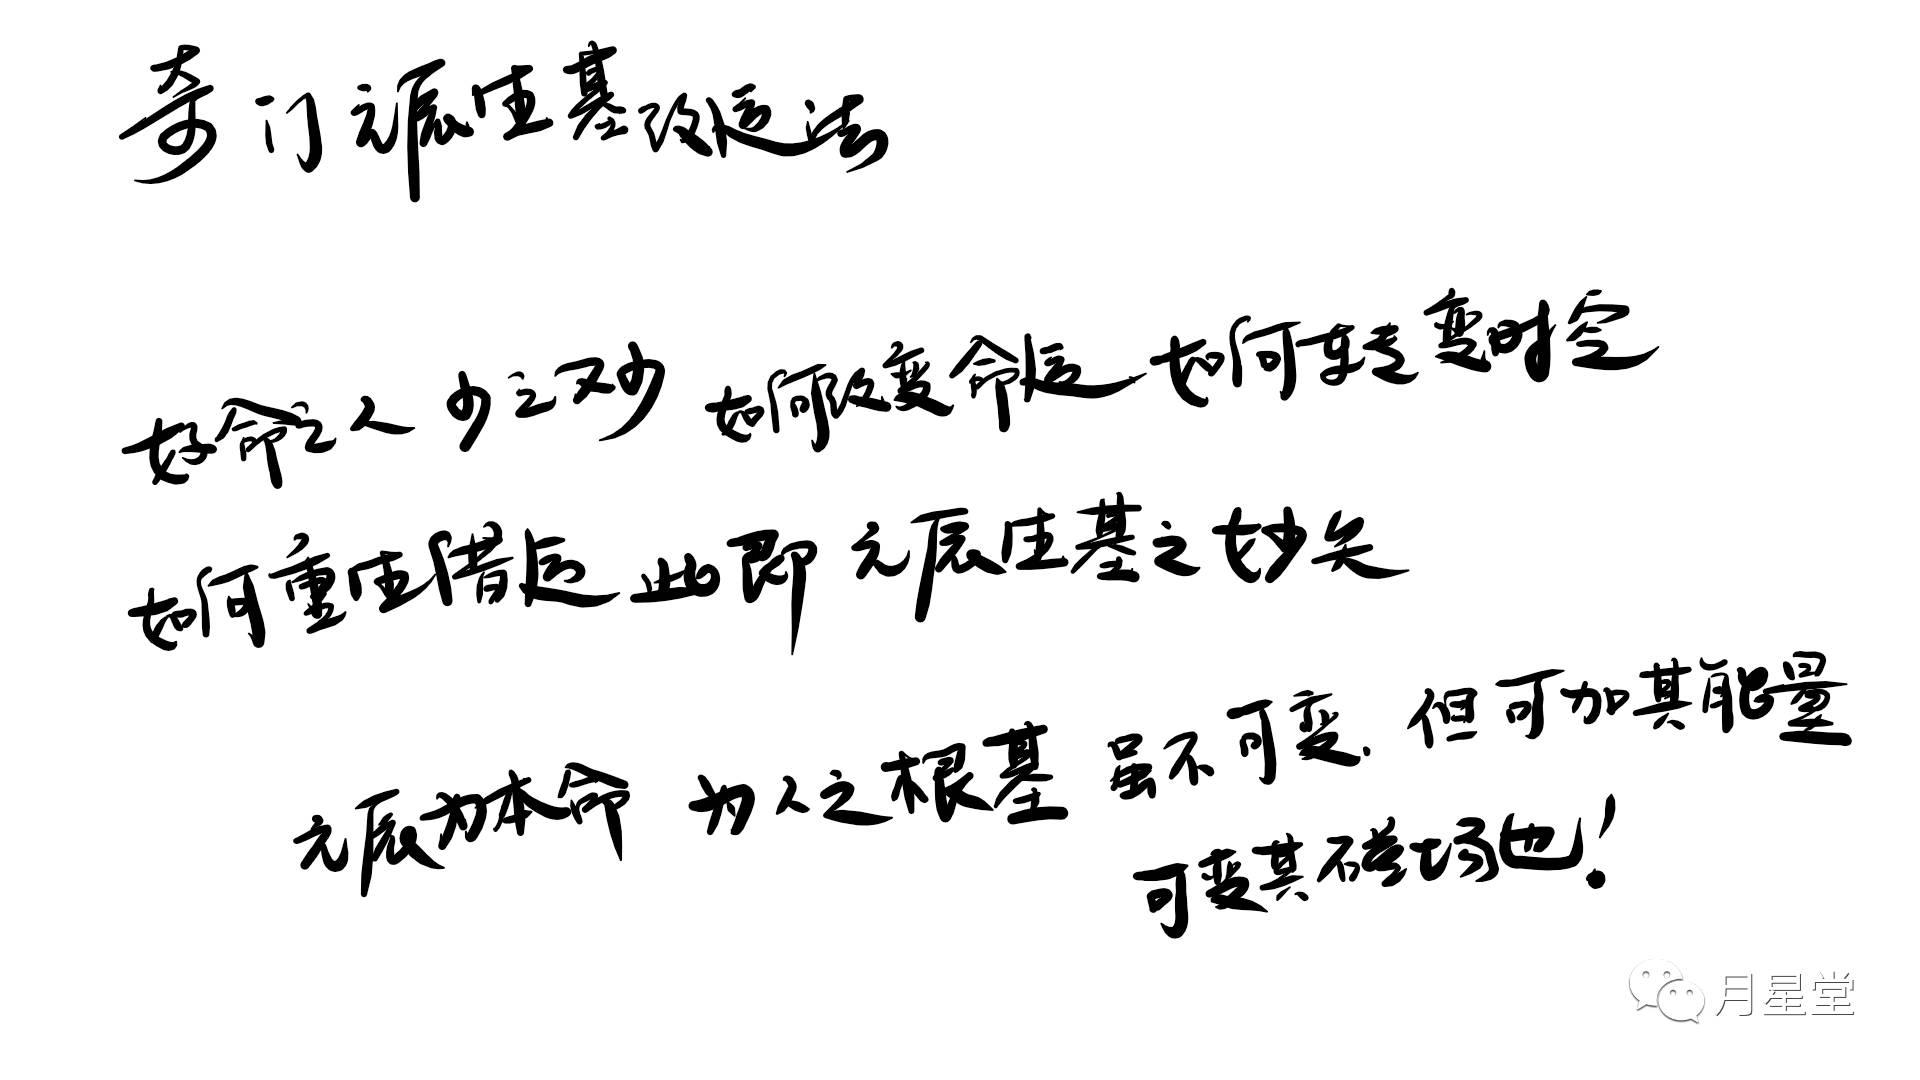 奇门元辰生基改运法
好命之人 少之又少 如何改变命运 如何转变时空
如何重生借运 此即元辰生基之妙矣
元辰为本命 为人之根基 虽不可变.但可加其能量
可变其磁场也!
月星堂